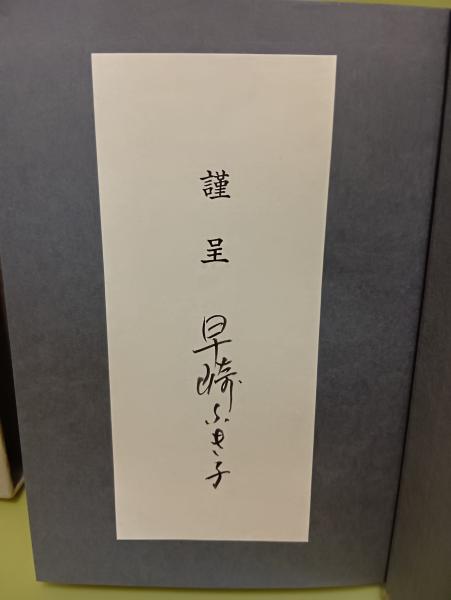 謹呈 早崎ふき子